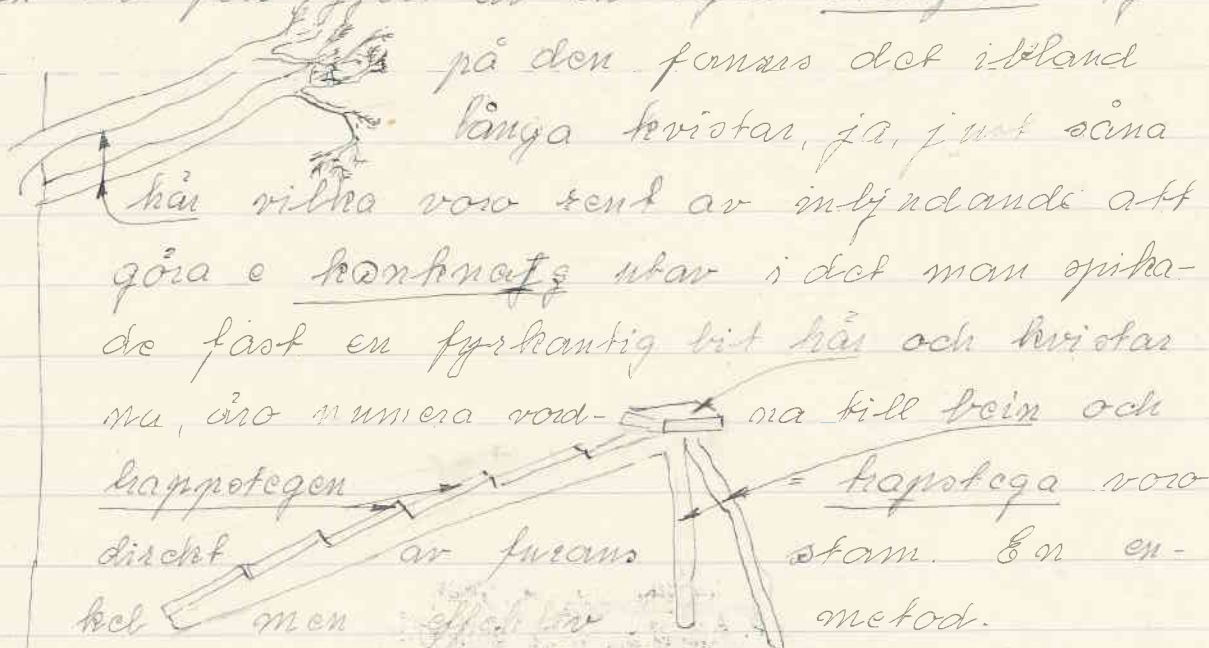 på den fanns det ibland
långa kvistar, ja, just såna
här vilka voro rent av inbjudande att
göra e utav i det man spika-
de fast en fyrkantig bit här och kvistar
na, äro numera vord- na till bein och
trappstegen = trapstega voro
direkt av furans stam. En en-
kel men effektiv metod.